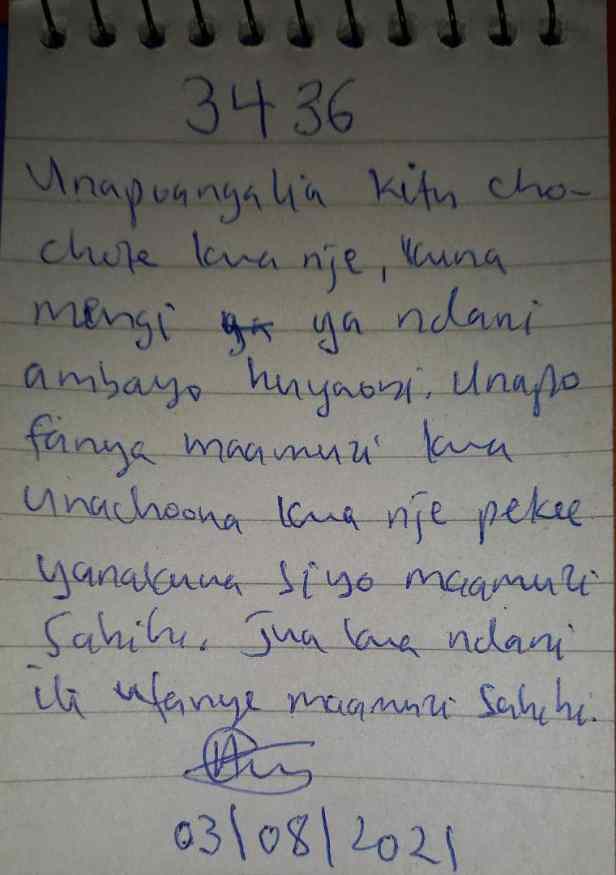 3436
Unapoangalia kitu cho-
chote kwa nje, kuna
mengi ya ndani
ambayo huyaoni. Unapo
fanya maamuzi kwa
unachoona kwa nje pekee
yanakuwa siyo maamuzi
sahihi. Jua kwa ndani
ili ufanye maamuzi sahihi.
03/08/2021